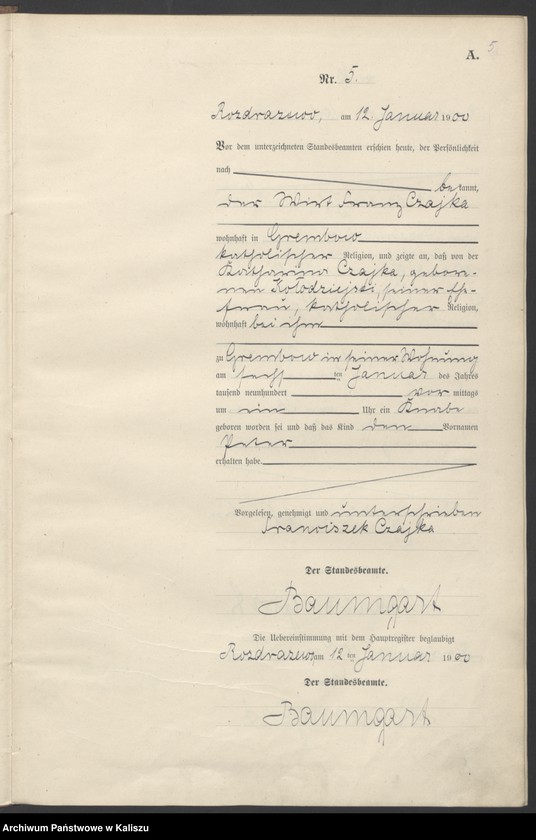 5.
A.
Nr. 5.
Rozdrazewo, am 12. Januar 1900
Vor dem unterzeichneten Standesbeamten erschien heute, der Persönlichkeit
nach
bekannt,
der Wirt Franz Czajka
wohnhaft in Grembow
katholischer Religion, und zeigte an, daß von der
Katharina Czajka, gebore-
nen Kołodziejski, seiner Ehe-
frau, katholischer Religion,
wohnhaft bei ihm
zu Grembow in seiner Wohnung
am sechsten Januar des Jahres
tausend neunhundert vormittags
um ein Uhr ein Knabe
geboren worden sei und daß das Kind den Vornamen
Peter
erhalten habe.
Vorgelesen, genehmigt und unterschrieben
Franciszek Czajka
Der Standesbeamte.
Baumgart
Die Uebereinstimmung mit dem Hauptregister beglaubigt
Rozdrazewo am 12ten Januar 1900
Der Standesbeamte.
Baumgart
Archiwum Państwowe w Kaliszu